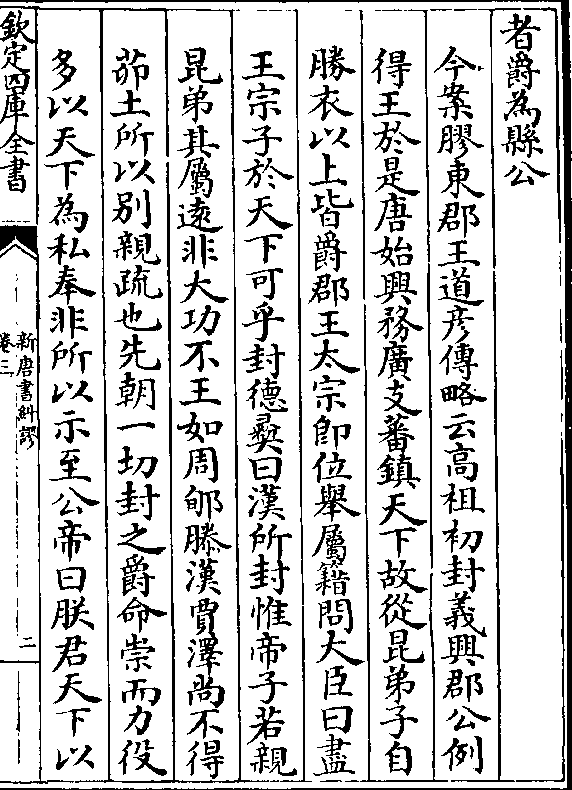 者爵為縣公
今案膠東郡王道彦傳略云高祖初封義興郡公例
得王於是唐始興務廣支蕃鎮天下故從昆弟子自
勝衣以上皆爵郡王太宗即位舉屬籍問大臣曰盡
王宗子於天下可乎封德彝曰漢所封惟帝子若親
昆弟其屬逺非大功不王如周郇滕漢賈澤尚不得
茆土所以别親疏也先朝一切封之爵命崇而力役
多以天下為私奉非所以示至公帝曰朕君天下以
欽定四庫全書
新唐書糾謬
卷三
二